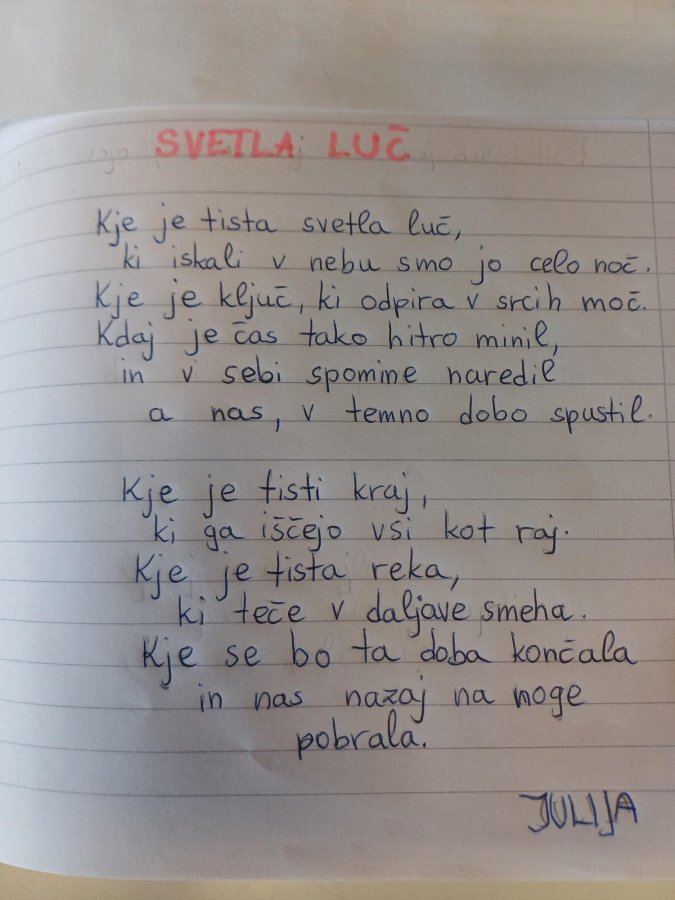 SVETLA LUČ
Kje je tista svetla luč,
ki iskali v nebu smo jo celo noč.
Kje je ključ, ki odpira v srcih moč.
Kdaj je čas tako hitro minil,
in v sebi spomine naredil
a nas, v temno dobo spustil.
Kje je tisti kraj,
ki ga iščejo vsi kot raj.
Kje je tista reka,
ki teče v daljave smeha.
Kje se bo ta doba končala
in nas nazaj na noge
pobrala.
JULIJA